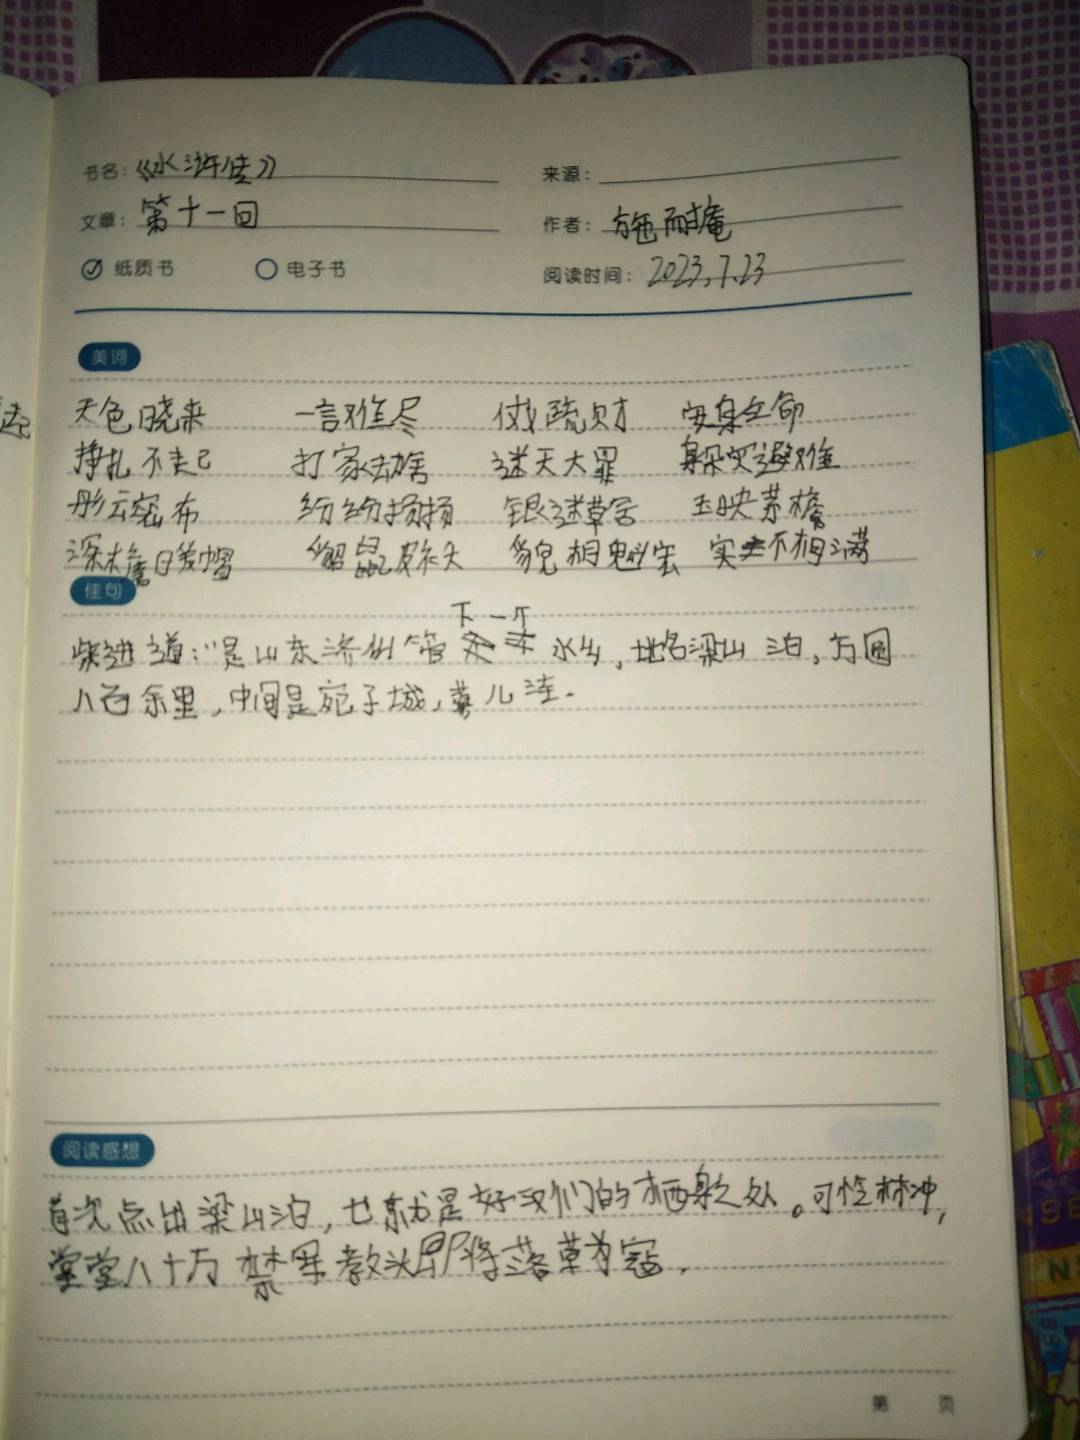 书名：《水浒传》 来源：
文章：第十一回 作者：施耐庵
纸质书 电子书 阅读时间：2023.7.23
美词
天色晓来 一言难尽 仗义疏财 安身立命
挣扎不起 打家劫舍 迷天大罪 躲灾避难
彤云密布 纷纷扬扬 银迷草舍 玉映茅檐
深檐暖帽 貂鼠皮袄 貌相魁宏 实不相瞒
佳句
下一个
柴进道：“是山东济州管 水乡，地名梁山泊，方圆
八百余里，中间是宛子城，蓼儿洼.
阅读感想
首次点出梁山泊，也就是好汉们的栖身之处。可怜林冲，
堂堂八十万禁军教头即将落草为寇.
第 页
起